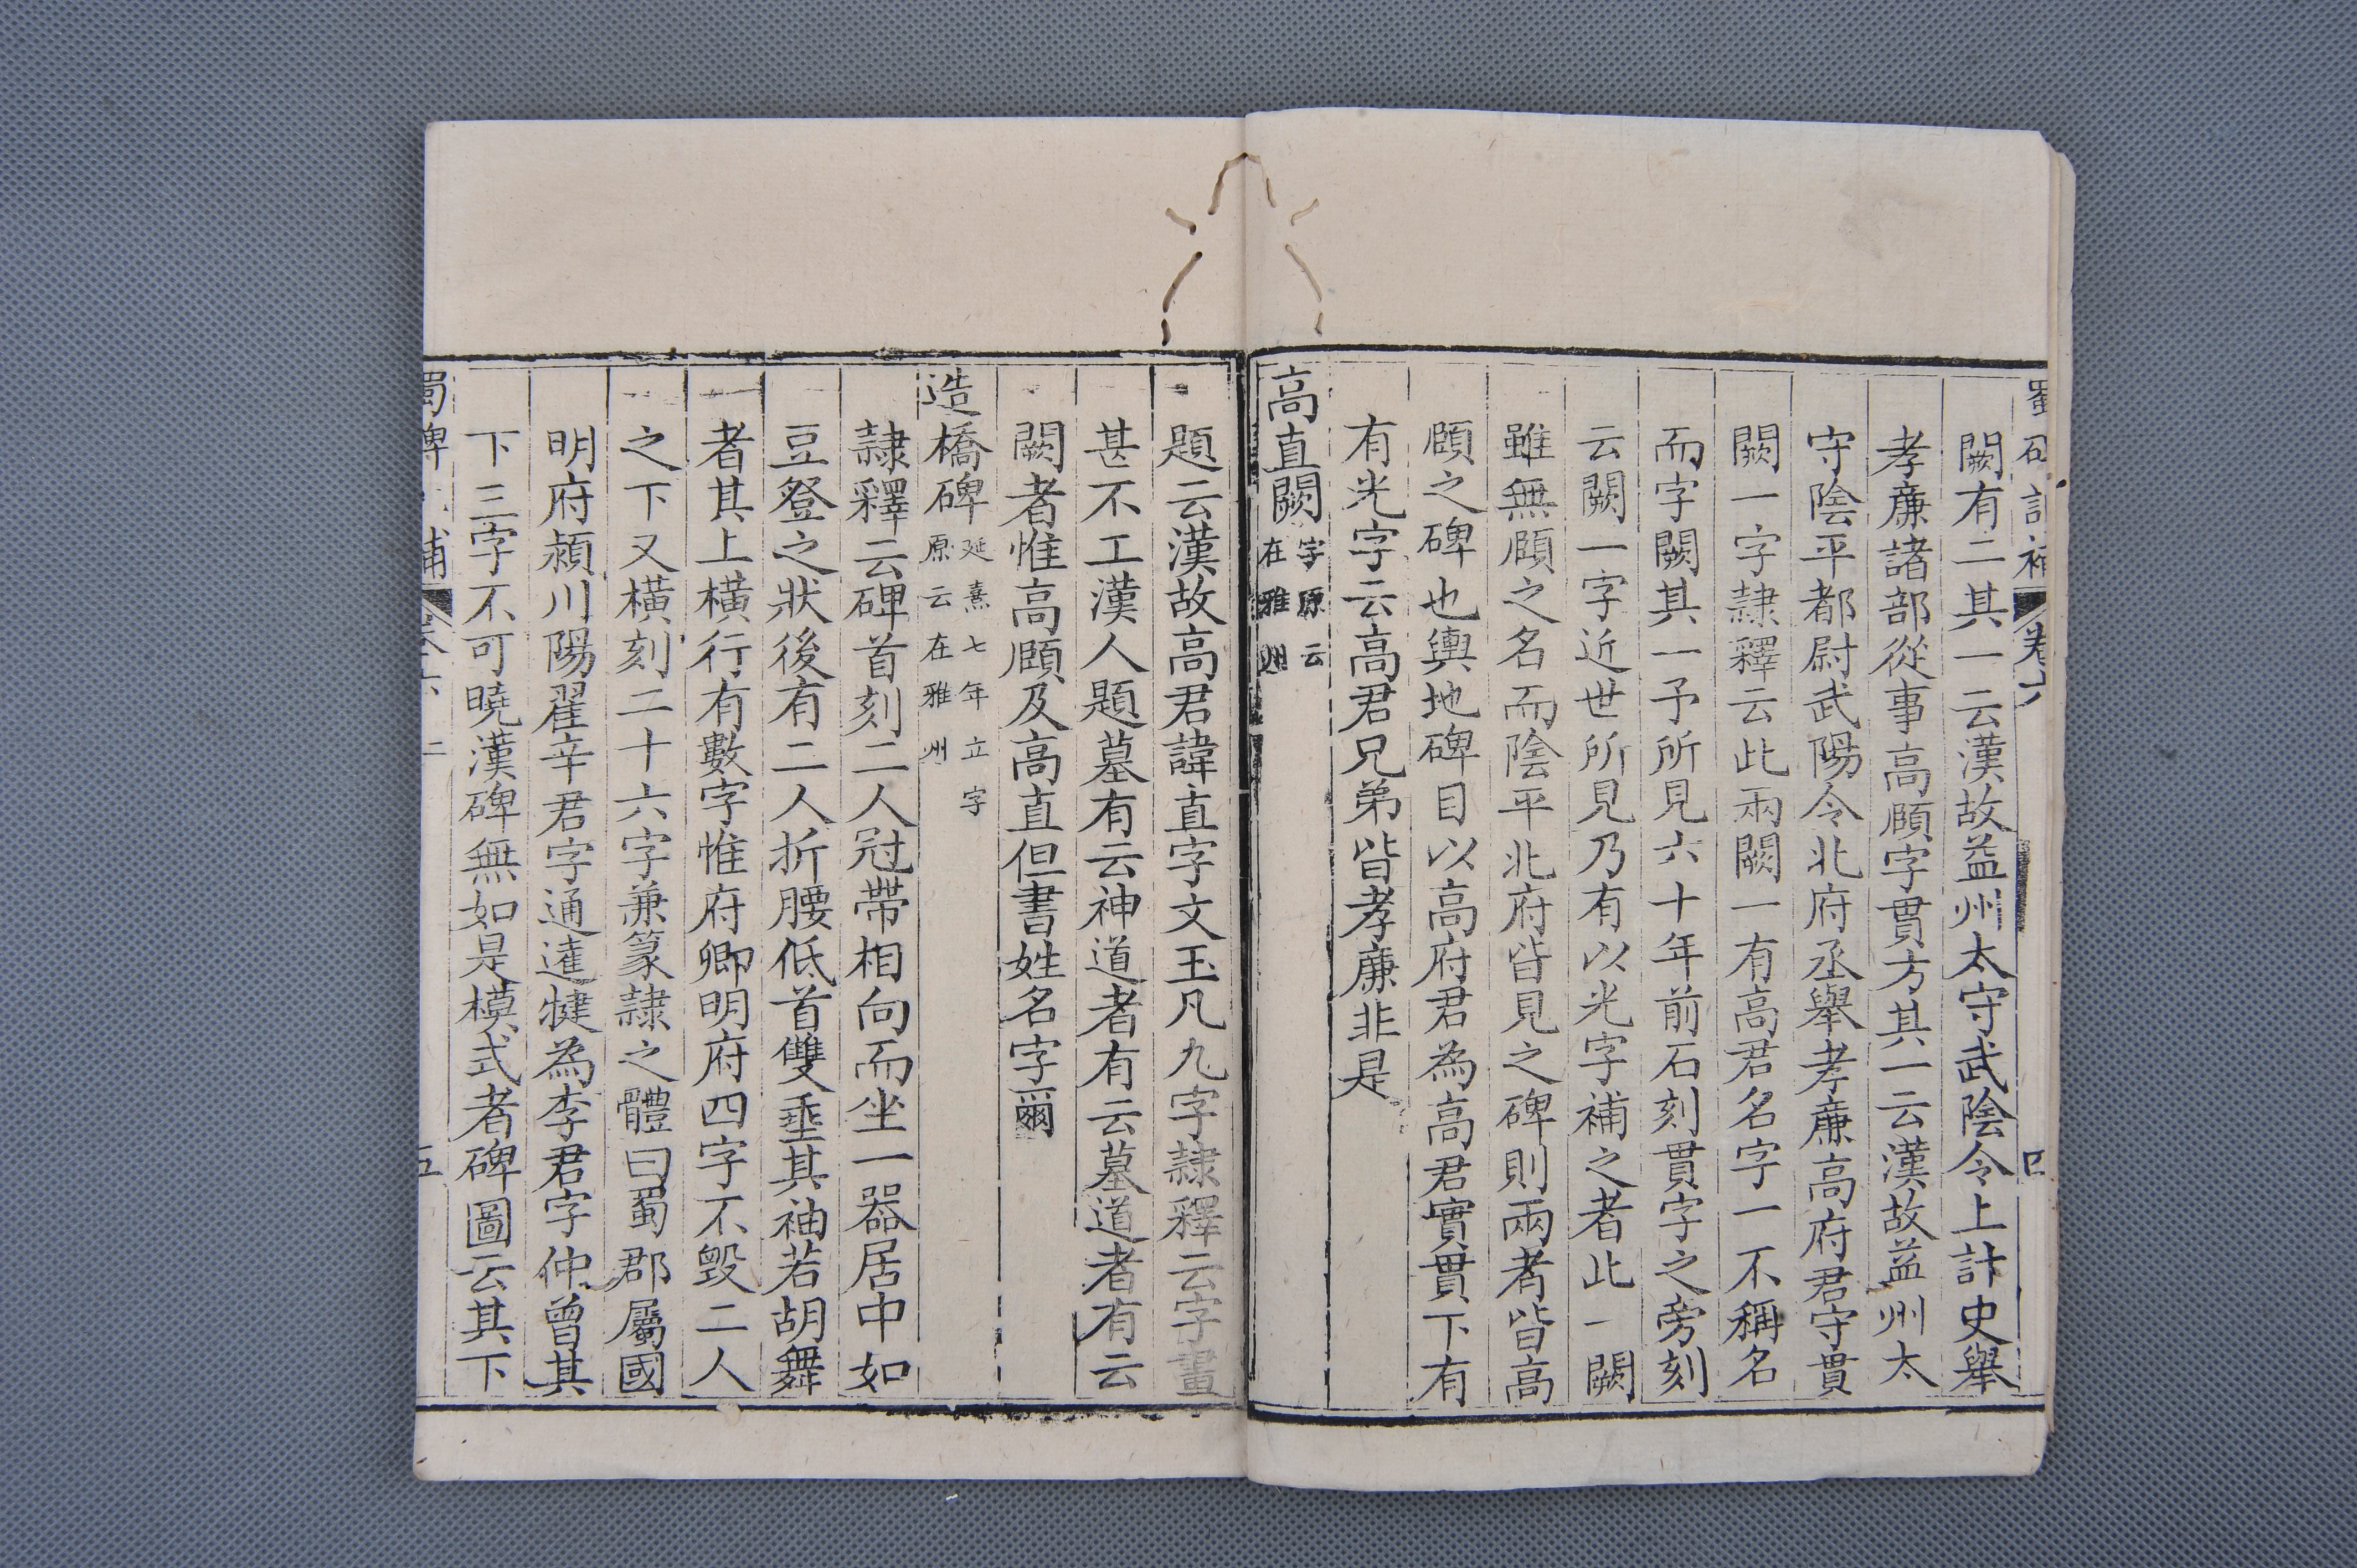 蜀碑記補 卷六 四
闕有二其一云漢故益州太守武陰令上計史舉
孝廉諸部從事高頤字貫方其一云漢故益州太
守陰平都尉武陽令北府丞舉孝廉高府君守貫
闕一字隷釋云此兩闕一有高君名字一不稱名
而字闕其一予所見六十年前石刻貫字之旁刻
云闕一字近世所見乃有以光字補之者此一闕
雖無頤之名而陰平北府皆見之碑則兩者皆高
頤之碑也輿地碑目以高府君為高君實貫下有
有光字云高君兄弟皆孝廉非是
高直闕 字原云
在雅州
題云漢故高君諱直字文玉凡九字隷釋云字畫
甚不工漢人題墓有云神道者有云墓道者有云
闕者惟高頤及高直但書姓名字爾
造橋碑 延熹七年立字
原云在雅州
隷釋云碑首刻二人冠帶相向而坐一器居中如
豆登之狀後有二人折腰低首雙垂其袖若胡舞
者其上橫行有數字惟府卿明府四字不毀二人
之下又橫刻二十六字兼篆隷之體曰蜀郡屬國
明府潁川陽翟辛君字通達犍為李君字仲曾其
下三字不可曉漢碑無如是模式者碑圖云其下
蜀碑 補 卷六 二 五